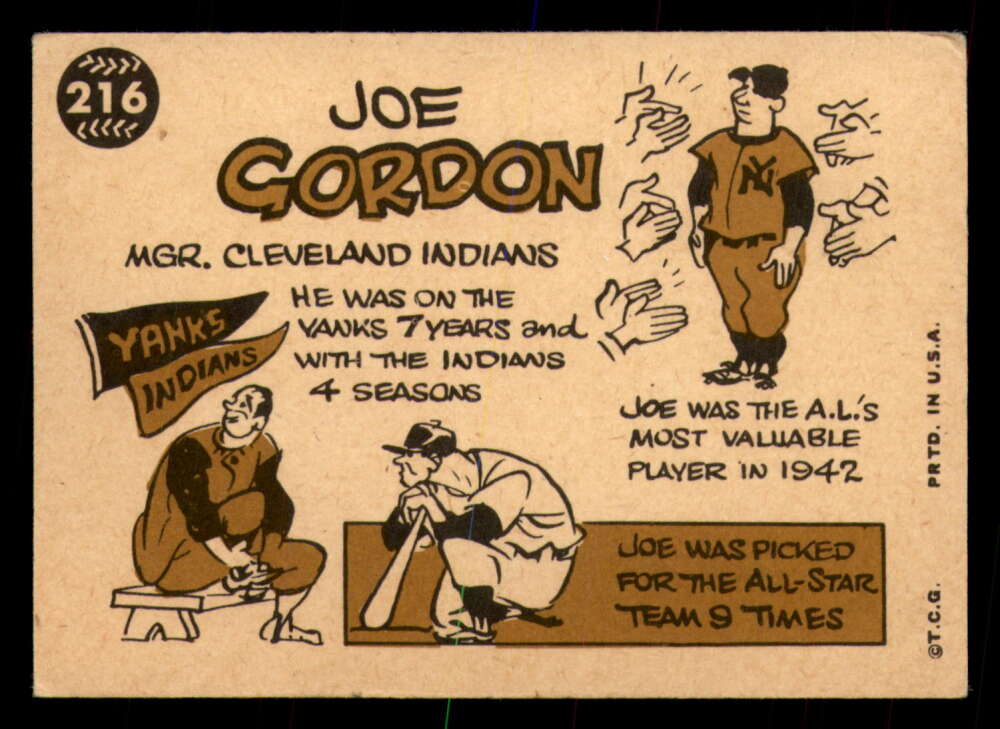 216
JOE
GORDON
MGR. CLEVELAND INDIANS
YANKS
INDIANS
HE WAS ON THE
YANKS 7 YEARS and
WITH THE INDIANS
4 SEASONS
NY
JOE WAS THE A.L.'S
MOST VALUABLE
PLAYER IN 1942
JOE WAS PICKED
FOR THE ALL-STAR
TEAM 9 TIMES
©T.C.G. PRTD. IN U.S.A.